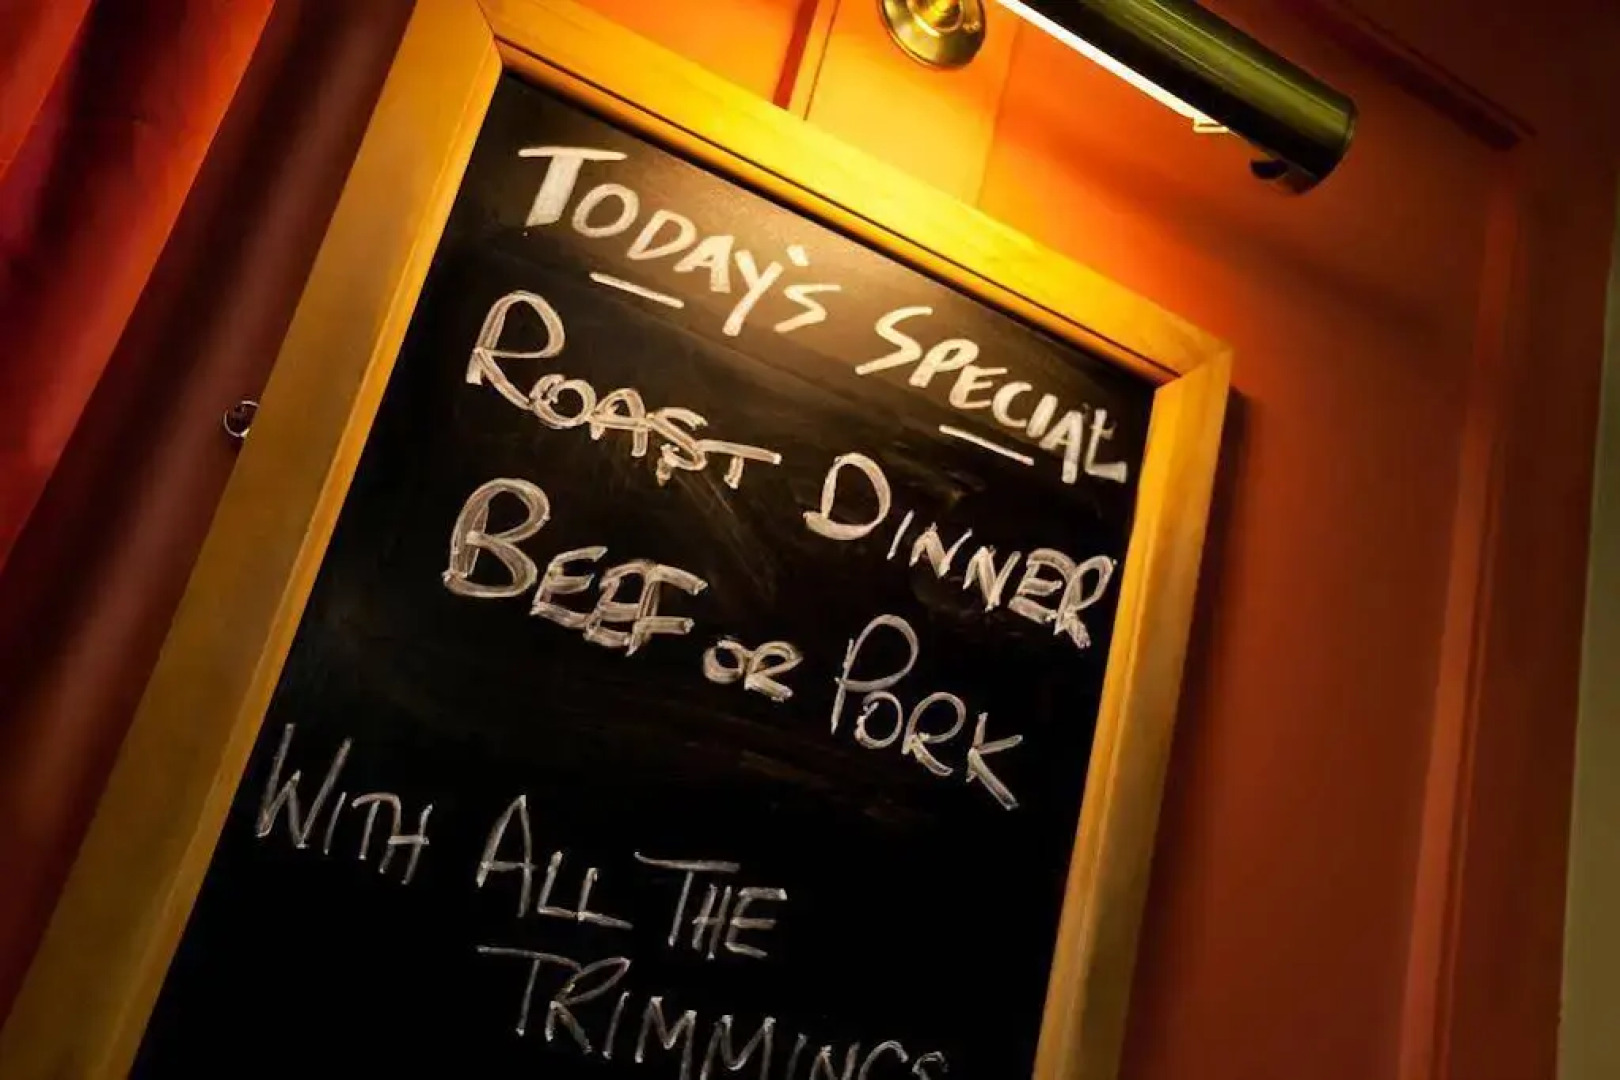 TODAY'S SPECIAL
ROAST DINNER
BEEF OR PORK
WITH ALL THE
TRIMMINGS